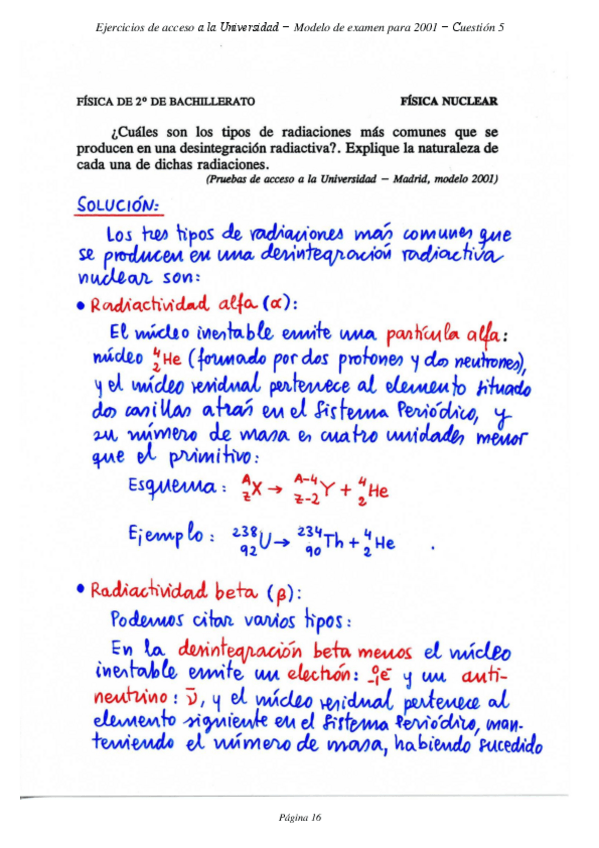 Ejercicios de acceso a la Universidad − Modelo de examen para 2001 − Cuestión 5
FÍSICA DE 2º DE BACHILLERATO FÍSICA NUCLEAR
¿Cuáles son los tipos de radiaciones más comunes que se
producen en una desintegración radiactiva?. Explique la naturaleza de
cada una de dichas radiaciones.
(Pruebas de acceso a la Universidad − Madrid, modelo 2001)
SOLUCIÓN:
Los tres tipos de radiaciones más comunes que
se producen en una desintegración radiactiva
nuclear son:
• Radiactividad alfa (α):
El núcleo inestable emite una partícula alfa:
núcleo ⁴₂He (formado por dos protones y dos neutrones),
y el núcleo residual pertenece al elemento situado
dos casillas atrás en el Sistema Periódico, y
su número de masa es cuatro unidades menor
que el primitivo:
Esquema: ᴬ_Z X → ᴬ⁻⁴_Z-2 Y + ⁴₂He
Ejemplo: ²³⁸₉₂U → ²³⁴₉₀Th + ⁴₂He .
• Radiactividad beta (β):
Podemos citar varios tipos:
En la desintegración beta menos el núcleo
inestable emite un electrón: ⁰₋₁e⁻ y un anti-
neutrino: ν̄, y el núcleo residual pertenece al
elemento siguiente en el Sistema Periódico, man-
teniendo el número de masa, habiendo sucedido
Página 16